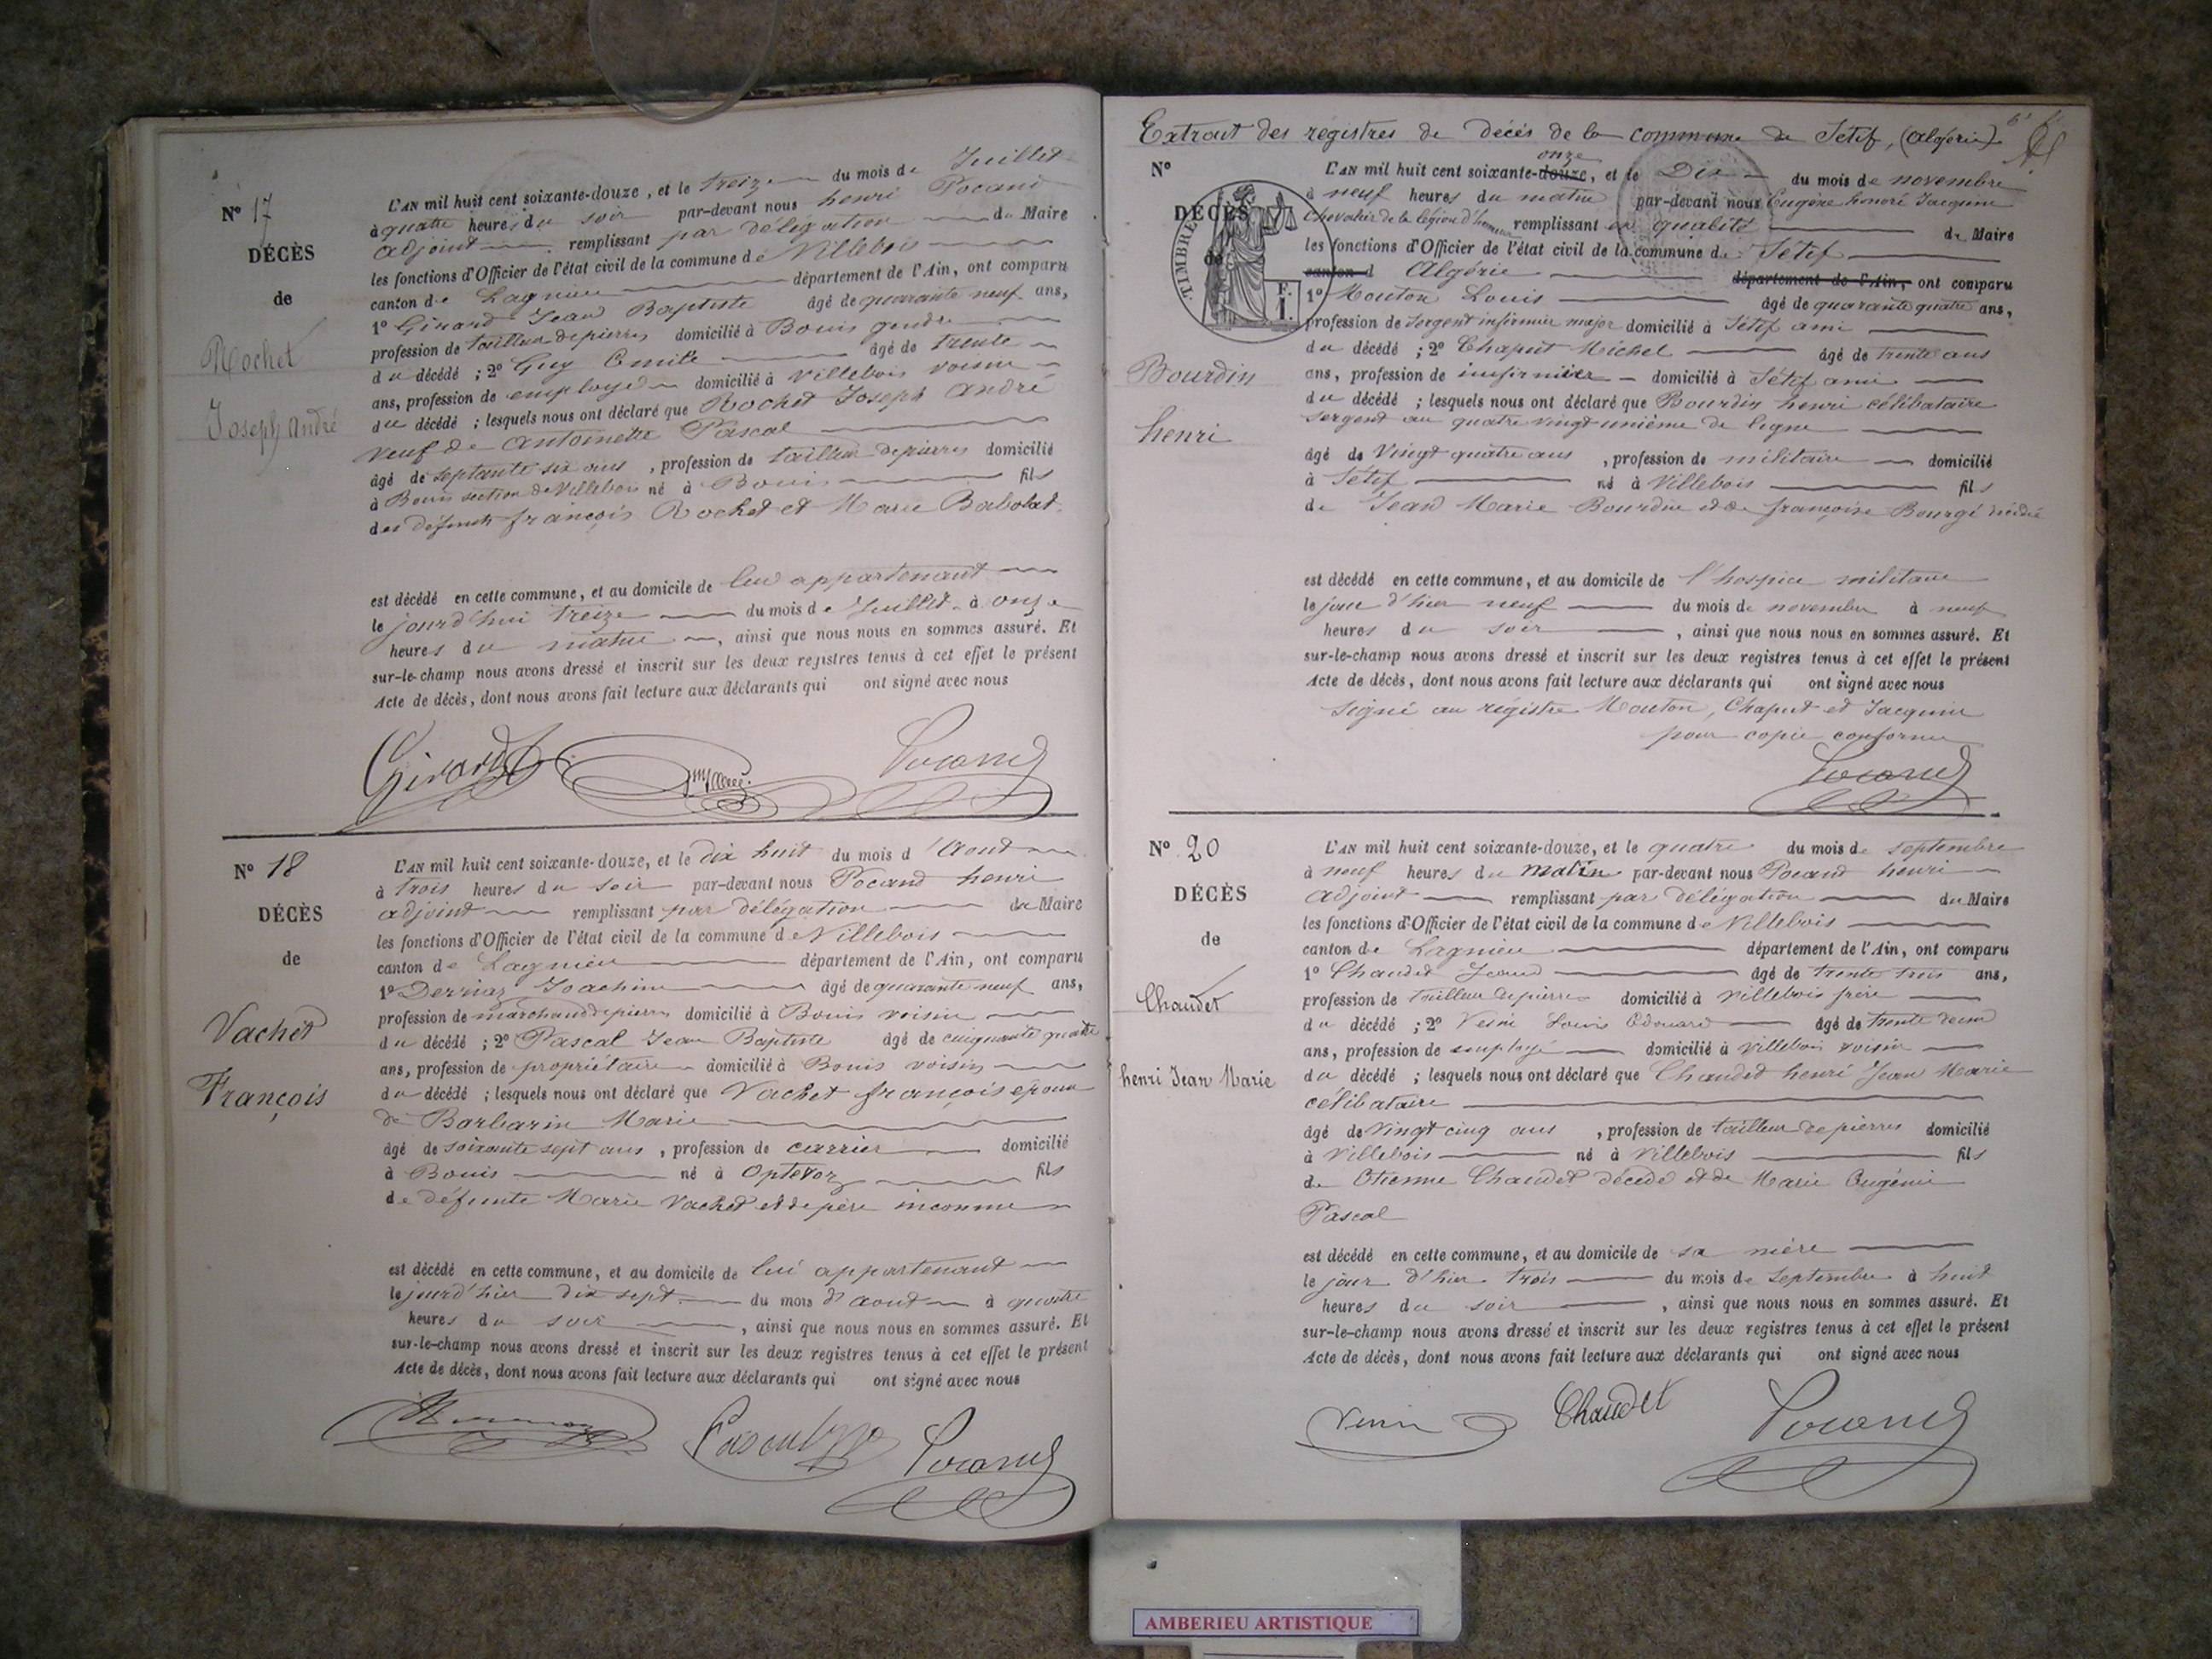 N° 17
DÉCÈS
de
Rochet
Joseph André
L'AN mil huit cent soixante-douze, et le treize du mois de Juillet
à quatre heures du soir par-devant nous henri Pocand
adjoint remplissant par délégation du Maire
les fonctions d'Officier de l'état civil de la commune de Villebois
canton de Lagnieu département de l'Ain, ont comparu
1° Girard Jean Baptiste âgé de quarante neuf ans,
profession de tailleur de pierres domicilié à Bouis gendre
du décédé ; 2° Guy Emile âgé de trente
ans, profession de employé domicilié à Villebois voisin
du décédé ; lesquels nous ont déclaré que Rochet Joseph André
veuf de Antoinette Pascal
âgé de septante six ans, profession de tailleur de pierres domicilié
à Bouis section de Villebois né à Bouis fils
des défunts françois Rochet et Marie Babolat
est décédé en cette commune, et au domicile de lui appartenant
le jourd'hui treize du mois de Juillet à onze
heures du matin, ainsi que nous nous en sommes assuré. Et
sur-le-champ nous avons dressé et inscrit sur les deux registres tenus à cet effet le présent
Acte de décès, dont nous avons fait lecture aux déclarants qui ont signé avec nous
Girard Pocand
N° 18
DÉCÈS
de
Vachet
François
L'AN mil huit cent soixante-douze, et le dix huit du mois d'Aout
à trois heures du soir par-devant nous Pocand henri
adjoint remplissant par délégation du Maire
les fonctions d'Officier de l'état civil de la commune de Villebois
canton de Lagnieu département de l'Ain, ont comparu
1° Derriaz Joachim âgé de quarante neuf ans,
profession de marchand de pierres domicilié à Bouis voisin
du décédé ; 2° Pascal Jean Baptiste âgé de cinquante quatre
ans, profession de propriétaire domicilié à Bouis voisin
du décédé ; lesquels nous ont déclaré que Vachet françois époux
de Barbarin Marie
âgé de soixante sept ans, profession de carrier domicilié
à Bouis né à Optevoz fils
de défunte Marie Vachet et de père inconnu
est décédé en cette commune, et au domicile de lui appartenant
le jour d'hier dix sept du mois d'aout à quatre
heures du soir, ainsi que nous nous en sommes assuré. Et
sur-le-champ nous avons dressé et inscrit sur les deux registres tenus à cet effet le présent
Acte de décès, dont nous avons fait lecture aux déclarants qui ont signé avec nous
Pascal Pocand
Extrait des régistres de décès de la commune de Sétif, (Algérie)
N°
DÉCÈS
de
TIMBRE
F.
1.
Bourdin
henri
onze
L'AN mil huit cent soixante-douze, et le Dix du mois de novembre
à neuf heures du matin par-devant nous Eugène honoré Jacquin
Chevalier de la légion d'honneur remplissant en qualité de Maire
les fonctions d'Officier de l'état civil de la commune de Sétif
canton d Algérie département de l'Ain, ont comparu
1° Mouton Louis âgé de quarante quatre ans,
profession de sergent infirmier major domicilié à Sétif ami
du décédé ; 2° Chaput Michel âgé de trente ans
ans, profession de infirmier domicilié à Sétif ami
du décédé ; lesquels nous ont déclaré que Bourdin henri célibataire
sergent au quatre vingt unième de ligne
âgé de Vingt quatre ans, profession de militaire domicilié
à Sétif né à Villebois fils
de Jean Marie Bourdin et de françoise Bourgé
est décédé en cette commune, et au domicile de l'hospice militaire
le jour d'hier neuf du mois de novembre à neuf
heures du soir, ainsi que nous nous en sommes assuré. Et
sur-le-champ nous avons dressé et inscrit sur les deux registres tenus à cet effet le présent
Acte de décès, dont nous avons fait lecture aux déclarants qui ont signé avec nous
signé au régistre Mouton, Chaput et Jacquin
pour copie conforme
Pocand
N° 20
DÉCÈS
de
Chaudet
henri Jean Marie
L'AN mil huit cent soixante-douze, et le quatre du mois de septembre
à neuf heures du matin par-devant nous Pocand henri
adjoint remplissant par délégation du Maire
les fonctions d'Officier de l'état civil de la commune de Villebois
canton de Lagnieu département de l'Ain, ont comparu
1° Chaudet Jean âgé de trente trois ans,
profession de tailleur de pierres domicilié à Villebois frère
du décédé ; 2° Louis Edouard âgé de trente deux
ans, profession de employé domicilié à Villebois voisin
du décédé ; lesquels nous ont déclaré que Chaudet henri Jean Marie
célibataire
âgé de vingt cinq ans, profession de tailleur de pierres domicilié
à Villebois né à Villebois fils
de Etienne Chaudet décédé et de Marie Eugénie
Pascal
est décédé en cette commune, et au domicile de sa mère
le jour d'hier trois du mois de septembre à huit
heures du soir, ainsi que nous nous en sommes assuré. Et
sur-le-champ nous avons dressé et inscrit sur les deux registres tenus à cet effet le présent
Acte de décès, dont nous avons fait lecture aux déclarants qui ont signé avec nous
Chaudet Pocand
AMBERIEU ARTISTIQUE